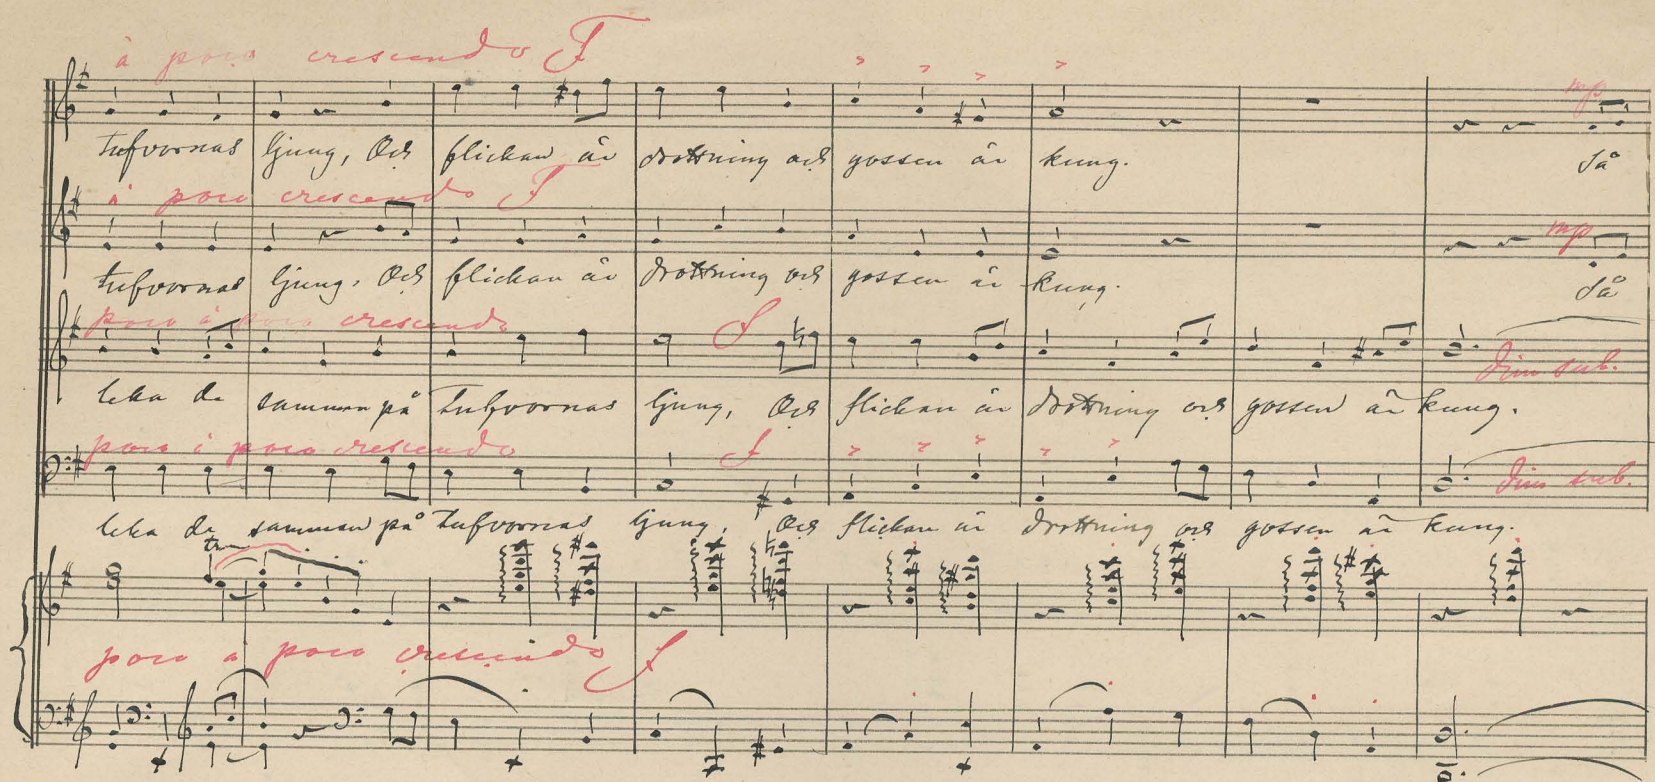 à poco crescendo F
mp
tufvornas ljung, Och flickan är drottning och gossen är kung. Så
à poco crescendo F
mp
tufvornas ljung, Och flickan är drottning och gossen är kung. Så
poco à poco crescendo f
dim sub.
leka de samman på tufvornas ljung, Och flickan är drottning och gossen är kung.
poco à poco crescendo f
dim sub.
leka de samman på tufvornas ljung, Och flickan är drottning och gossen är kung.
tr
poco a poco crescendo f